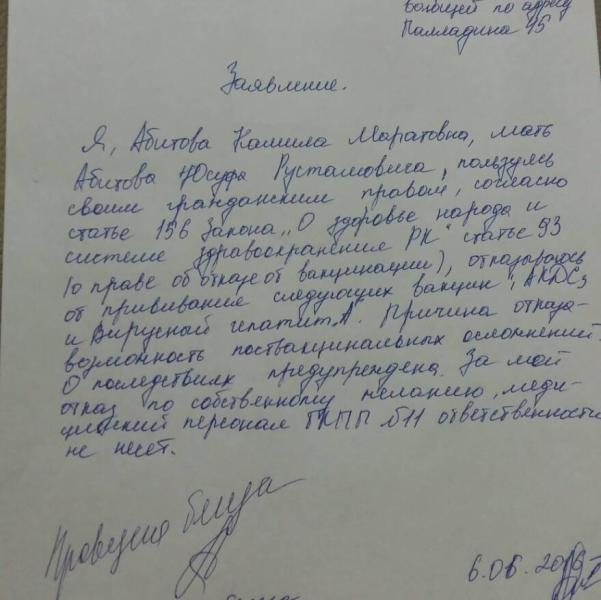 вающей по адресу
Палладина 15
Заявление.
Я, Абитова Камила Маратовна, мать
Абитова Юсуфа Рустамовича, пользуясь
своим гражданским правом, согласно
статье 156 Закона „О здоровье народа и
системе здравоохранения РК" статье 93
(о праве об отказе от вакцинации), отказываюсь
от прививание следующих вакцин „АКДС3
и Вирусный гепатит „А". Причина отказа-
возможность поствакцинальных осложнений.
О последствиях предупреждена. За мой
отказ по собственному желанию, меди-
цинский персонал ГКПП №11 ответственности
не несет.
6.06.